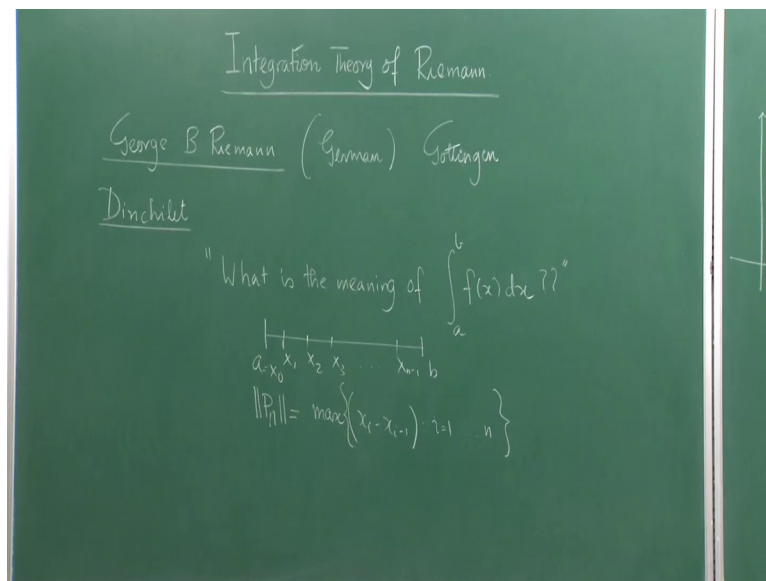 Integration Theory of Riemann.
George B Riemann (German) Gottingen
Dinchilet
"What is the meaning of ∫_a^b f(x) dx ??"
a=x₀ x₁ x₂ x₃ .... xₙ₋₁ b
||Pₙ|| = max{(xᵢ - xᵢ₋₁) : i=1 ... n}